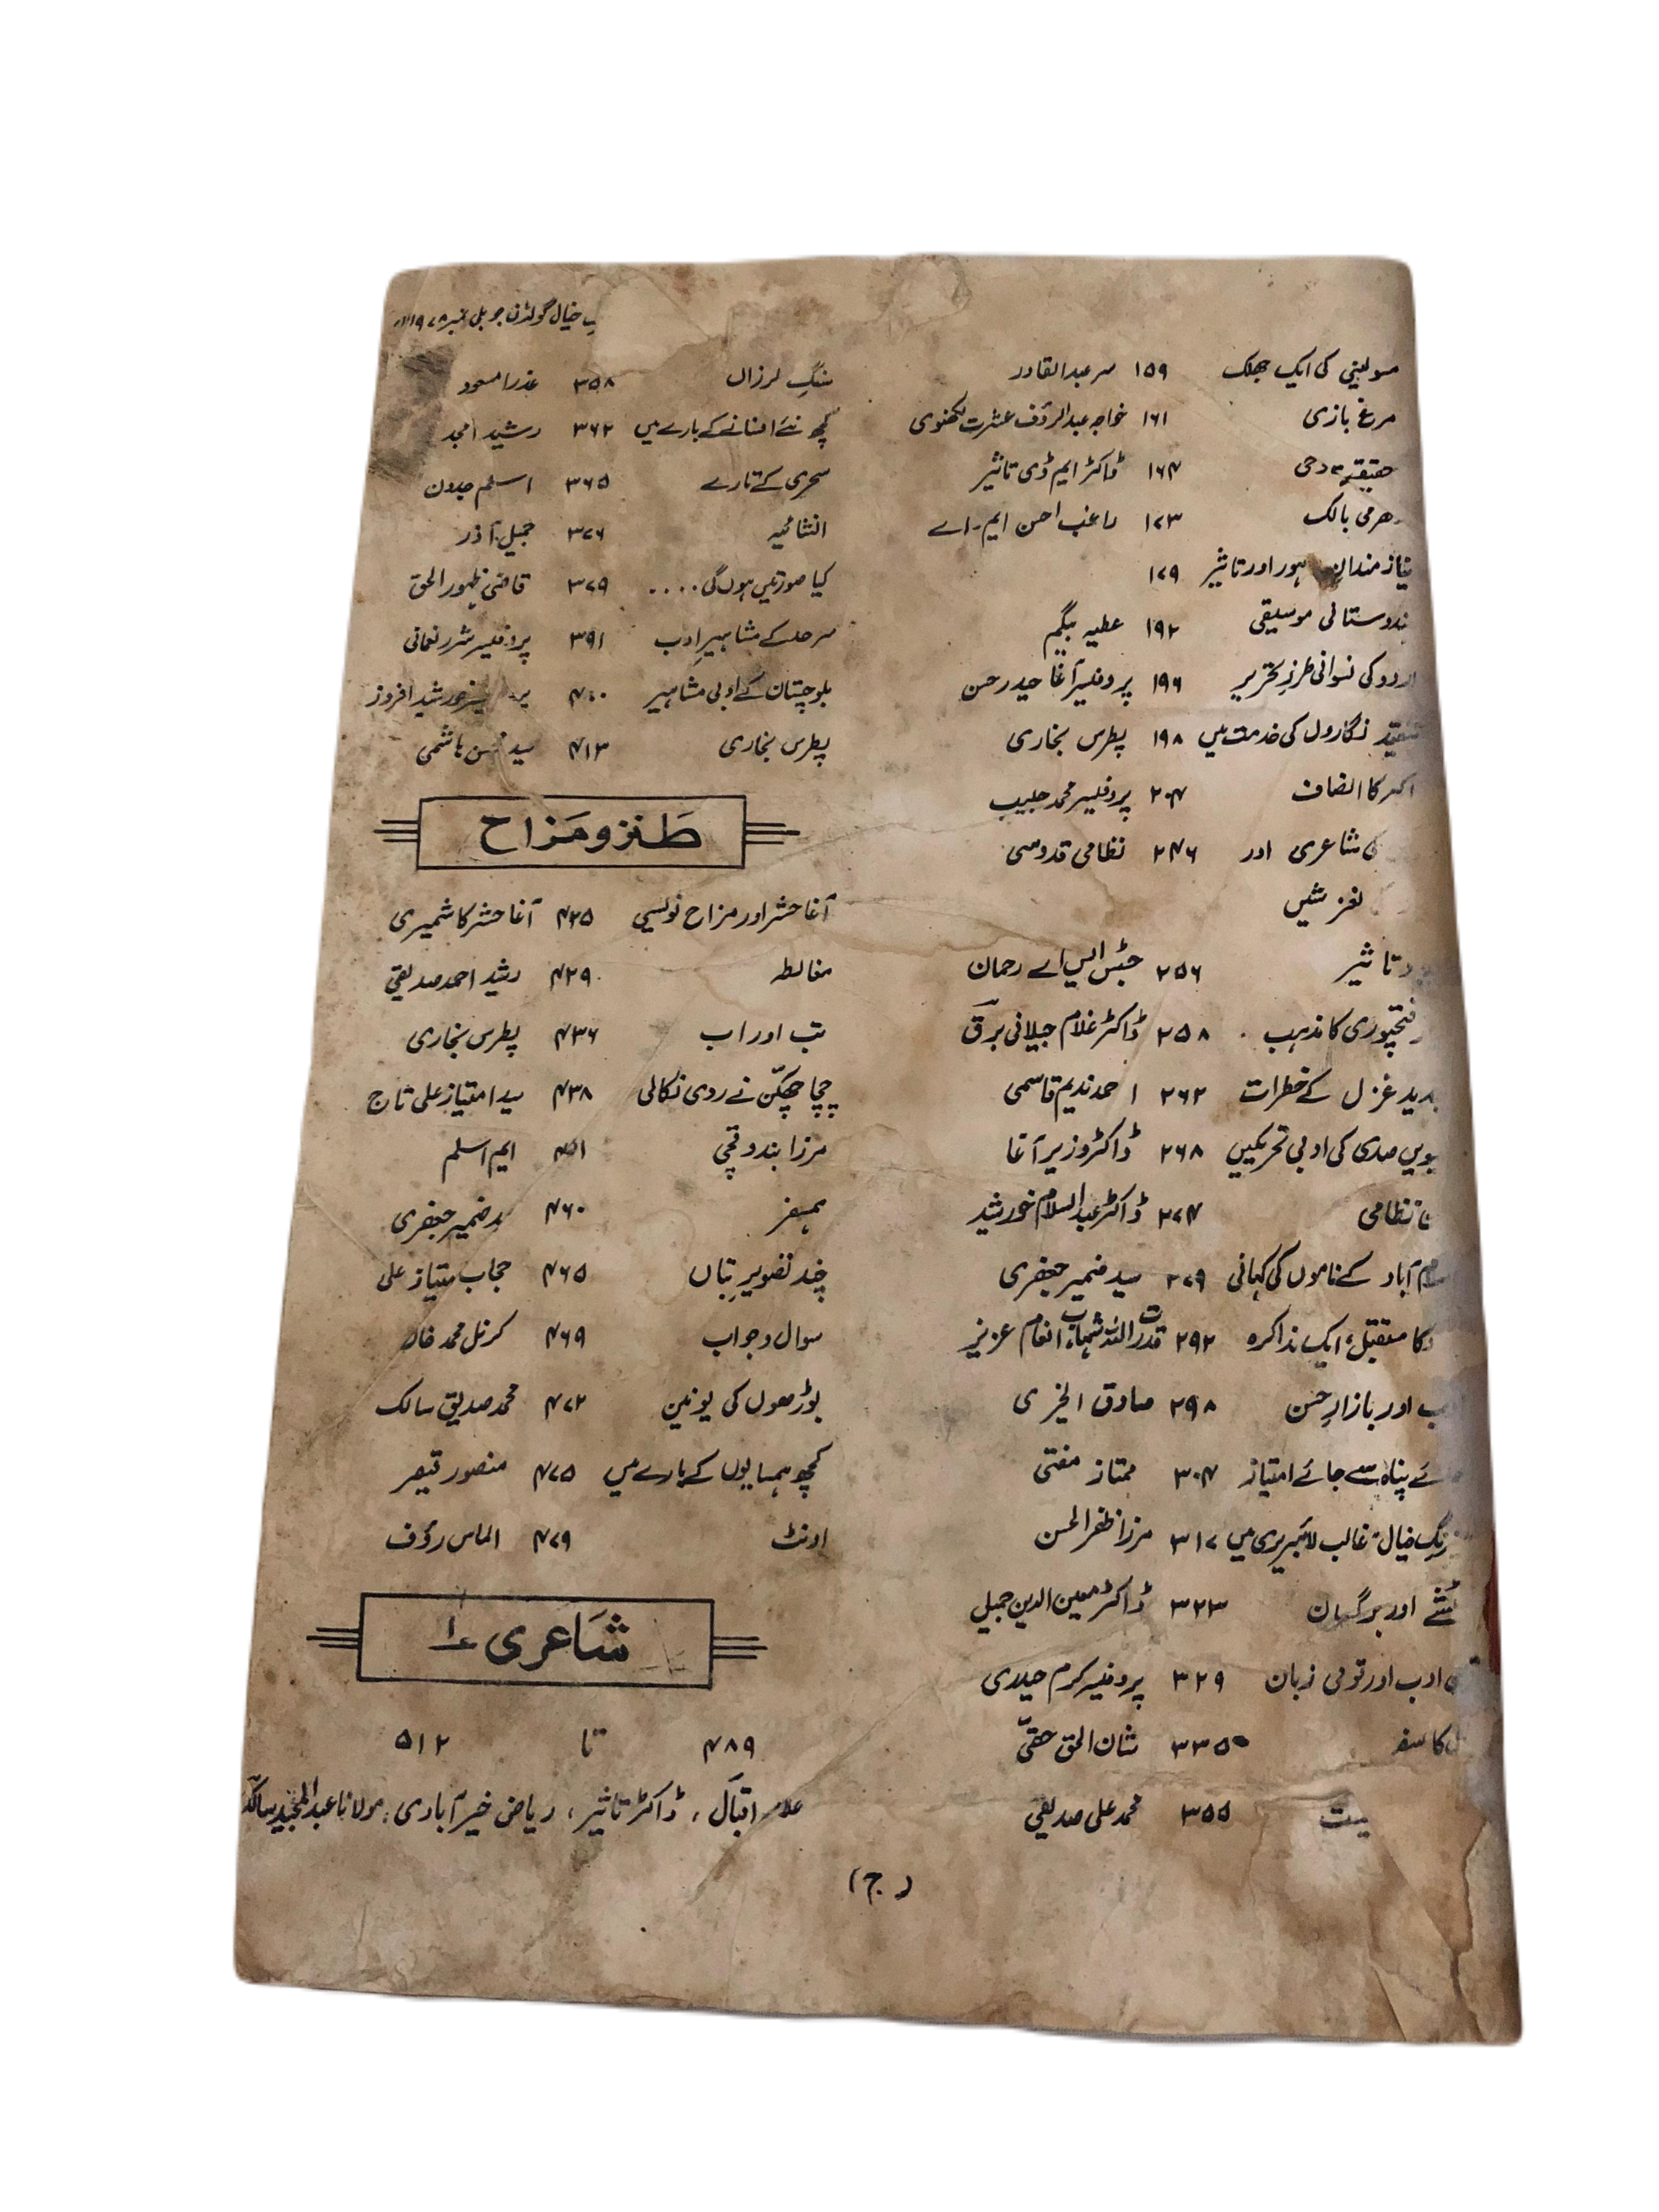 خیال گولڈن جوبلی نمبر ۱۹۷۸ء
مسولینی کی ایک جھلک ۱۵۹ سر عبدالقادر
مرغ بازی ۱۶۱ خواجہ عبدالرؤف عشرت لکھنوی
حقیقت وحی ۱۶۴ ڈاکٹر ایم ڈی تاثیر
بالک ۱۷۳ راغب احسن ایم۔اے
نیاز مندان اور تاثیر ۱۷۹
موسیقی ۱۹۲ عطیہ بیگم
اردو کی نسوانی طرزِ تحریر ۱۹۶ پروفیسر آغا حیدر حسن
تنقید نگاروں کی خدمت میں ۱۹۸ پطرس بخاری
کا انصاف ۲۰۴ پروفیسر محمد حبیب
کی شاعری اور ۲۴۶ نظامی قدوسی
لغزشیں
تاثیر ۲۵۶ جسٹس ایس اے رحمان
فتحپوری کا مذہب ۲۵۸ ڈاکٹر غلام جیلانی برق
غزل کے خطرات ۲۶۲ احمد ندیم قاسمی
صدی کی ادبی تحریکیں ۲۶۸ ڈاکٹر وزیر آغا
نظامی ۲۷۴ ڈاکٹر عبدالسلام خورشید
آباد کے ناموں کی کہانی ۲۷۹ سید ضمیر جعفری
کا مستقبل، ایک مذاکرہ ۲۹۲ قدرت اللہ شہاب، انعام عزیز
اور بازارِ حسن ۲۹۸ صادق الخیری
پناہ سے جائے امتیاز ۳۰۴ ممتاز مفتی
خیال" غالب لائبریری میں ۳۱۷ مرزا ظفر الحسن
اور برگسان ۳۲۳ ڈاکٹر معین الدین جمیل
ادب اور قومی زبان ۳۲۹ پروفیسر کرم حیدری
کا سفر ۳۳۵ شان الحق حقی
۳۵۵ محمد علی صدیقی
سنگِ لرزاں ۳۵۸ عذرا مسعود
کچھ نئے افسانے کے بارے میں ۳۶۲ رشید امجد
سحری کے تارے ۳۶۵ اسلم جدون
انشائیہ ۳۷۶ جمیل آذر
کیا صورتیں ہوں گی .... ۳۷۹ قاضی ظہور الحق
سرحد کے مشاہیرِ ادب ۳۹۱ پروفیسر شرر نعمانی
بلوچستان کے ادبی مشاہیر ۴۰۰ خورشید افروز
پطرس بخاری ۴۱۳ سید ہاشمی
طنز و مزاح
آغا حشر اور مزاح نویسی ۴۲۵ آغا حشر کاشمیری
مغالطہ ۴۲۹ رشید احمد صدیقی
تب اور اب ۴۳۶ پطرس بخاری
چچا چھکن نے ردی نکالی ۴۳۸ سید امتیاز علی تاج
مرزا بندوقچی ایم اسلم
ہمسفر ۴۶۰ ضمیر جعفری
چند تصویرِ بتاں ۴۶۵ حجاب امتیاز علی
سوال و جواب ۴۶۹ کرنل محمد خان
بوڑھوں کی یونین ۴۷۲ محمد صدیق سالک
کچھ ہمسایوں کے بارے میں ۴۷۵ منصور قیصر
اونٹ ۴۷۹ الماس رؤف
شاعری ۱
۴۸۹ تا ۵۱۲
علامہ اقبال، ڈاکٹر تاثیر، ریاض خیرآبادی، مولانا عبدالمجید سالک
(ج)